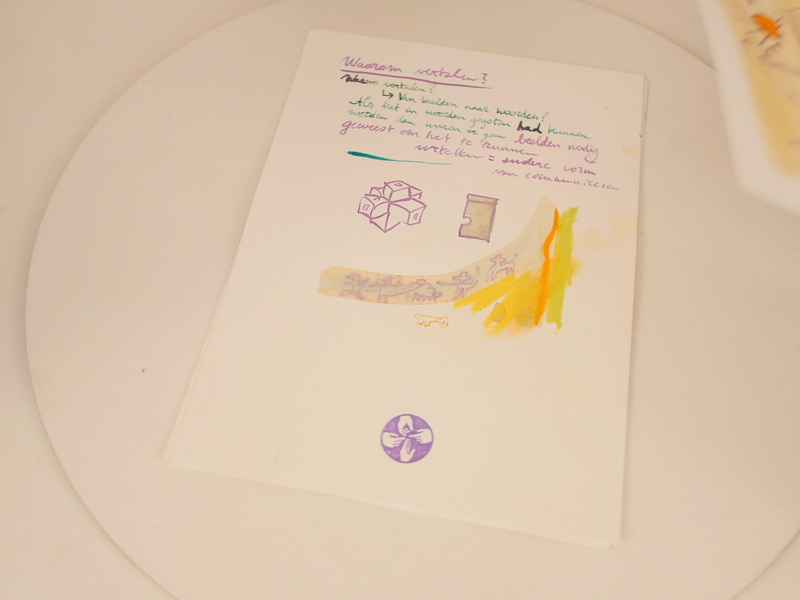 Waarom vertalen?
Waarom vertalen?
↳ Van beelden naar woorden?
Als het in woorden gegoten had kunnen
worden dan waren er geen beelden nodig
geweest om het te kunnen
vertalen = andere vorm
van communiceren